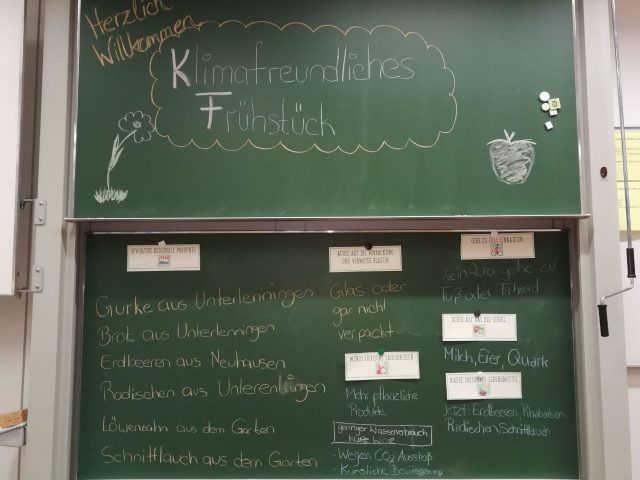 Herzlich
Willkommen
Klimafreundliches
Frühstück
BEVORZUGE REGIONALE PRODUKTE
Gurke aus Unterlenningen
Brot aus Unterlenningen
Erdbeeren aus Neuhausen
Radischen aus Unterenslingen
Löwenzahn aus dem Garten
Schnittlauch aus dem Garten
ACHTE AUF DIE VERPACKUNG
UND VERMEIDE PLASTIK
Glas oder
gar nicht
verpackt
WENIG TIERISCHE ERZEUGNISSEN
Mehr pflanzliche
Produkte
geringer Wasserverbrauch
kurze Wege
-Wegen CO2 Ausstoß
-Künstliche Bewässerung
GEHE ZU FUSS EINKAUFEN
kein Auto gehe zu
Fuß oder Fahrrad
ACHTE AUF DAS BIO-SIEGEL
Milch, Eier, Quark
KAUFE SAISONALE LEBENSMITTEL
Jetzt: Erdbeeren, Rhabarber
Radischen, Schnittlauch